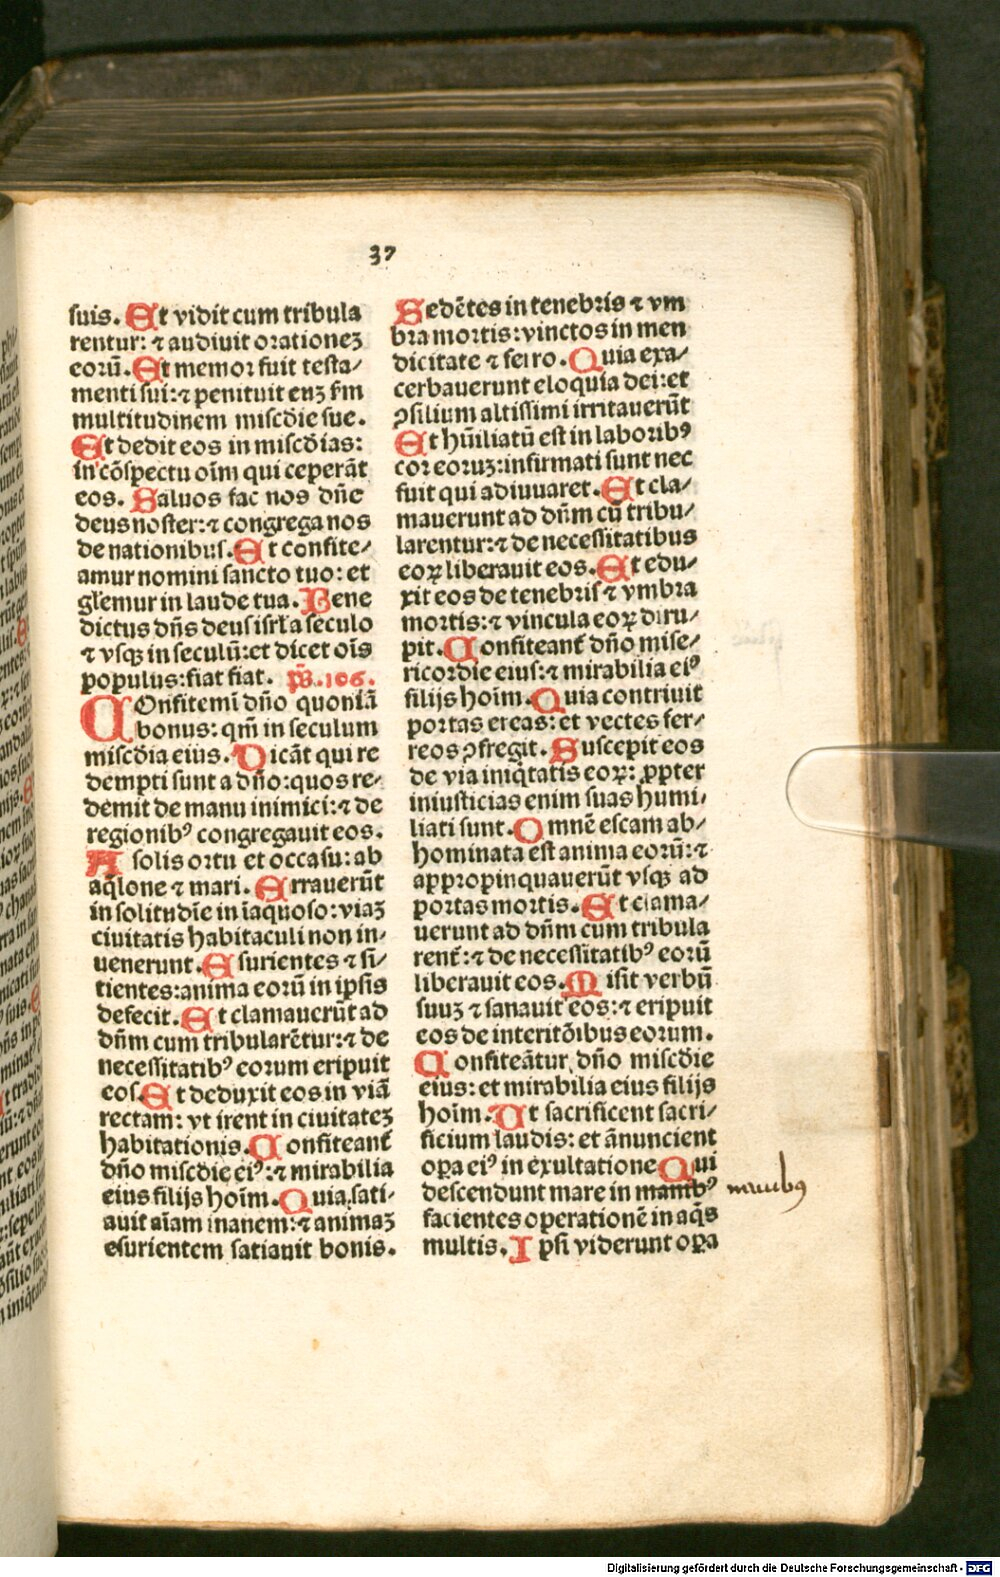 37
suis. Et vidit cum tribula
rentur: ⁊ audiuit orationeꝫ
eorū. Et memor fuit testa⸗
menti sui: ⁊ penituit euꝫ ẜm
multitudinem miscd̄ie sue.
Et dedit eos in miscd̄ias:
in cōspectu oīm qui ceperāt
eos. Saluos fac nos dn̄e
deus noster: ⁊ congrega nos
de nationibus. Et confite⸗
amur nomini sancto tuo: et
gl̄emur in laude tua. Bene
dictus dn̄s deus isrl̄ a seculo
⁊ vsqꝫ in seculū: et dicet oīs
populus: fiat fiat. ps̄. 106.
COnfitemī dn̄o quoniā
bonus: qm̄ in seculum
miscd̄ia eius. Dicāt qui re
dempti sunt a dn̄o: quos re⸗
demit de manu inimici: ⁊ de
regionibꝰ congregauit eos.
A solis ortu et occasu: ab
aq̄lone ⁊ mari. Errauerūt
in solitudīe in īaquoso: viaꝫ
ciuitatis habitaculi non in⸗
uenerunt. Esurientes ⁊ si⸗
tientes: anima eorū in ipsis
defecit. Et clamauerūt ad
dn̄m cum tribularētur: ⁊ de
necessitatibꝰ eorum eripuit
eos. Et deduxit eos in viā
rectam: vt irent in ciuitateꝫ
habitationis. Confiteant̄
dn̄o miscd̄ie eiꝰ: ⁊ mirabilia
eius filijs hoīm. Quia sati⸗
auit aīam inanem: ⁊ animaꝫ
esurientem satiauit bonis.
Sedētes in tenebris ⁊ vm
bra mortis: vinctos in men
dicitate ⁊ ferro. Quia exa⸗
cerbauerunt eloquia dei: et
ꝯsilium altissimi irritauerūt
Et hūiliatū est in laboribꝰ
cor eoruꝫ: infirmati sunt nec
fuit qui adiuuaret. Et cla⸗
mauerunt ad dn̄m cū tribu⸗
larentur: ⁊ de necessitatibus
eoꝝ liberauit eos. Et edu⸗
xit eos de tenebris ⁊ vmbra
mortis: ⁊ vincula eoꝝ diru⸗
pit. Confiteant̄ dn̄o mise⸗
ricordie eius: ⁊ mirabilia eiꝰ
filijs hoīm. Quia contriuit
portas ereas: et vectes fer⸗
reos ꝯfregit. Suscepit eos
de via iniq̄tatis eoꝝ: ꝓpter
iniusticias enim suas humi⸗
liati sunt. Omnē escam ab⸗
hominata est anima eorū: ⁊
appropinquauerūt vsqꝫ ad
portas mortis. Et clama⸗
uerunt ad dn̄m cum tribula
rent̄: ⁊ de necessitatibꝰ eorū
liberauit eos. Misit verbū
suuꝫ ⁊ sanauit eos: ⁊ eripuit
eos de interitōibus eorum.
Confiteātur dn̄o miscd̄ie
eius: et mirabilia eius filijs
hoīm. Ut sacrificent sacri⸗
ficium laudis: et ānuncient
oꝑa eiꝰ in exultatione Qui
descendunt mare in manibꝰ
facientes operationē in aq̄s
multis. Ipsi viderunt oꝑa
Digitalisierung gefördert durch die Deutsche Forschungsgemeinschaft - DFG